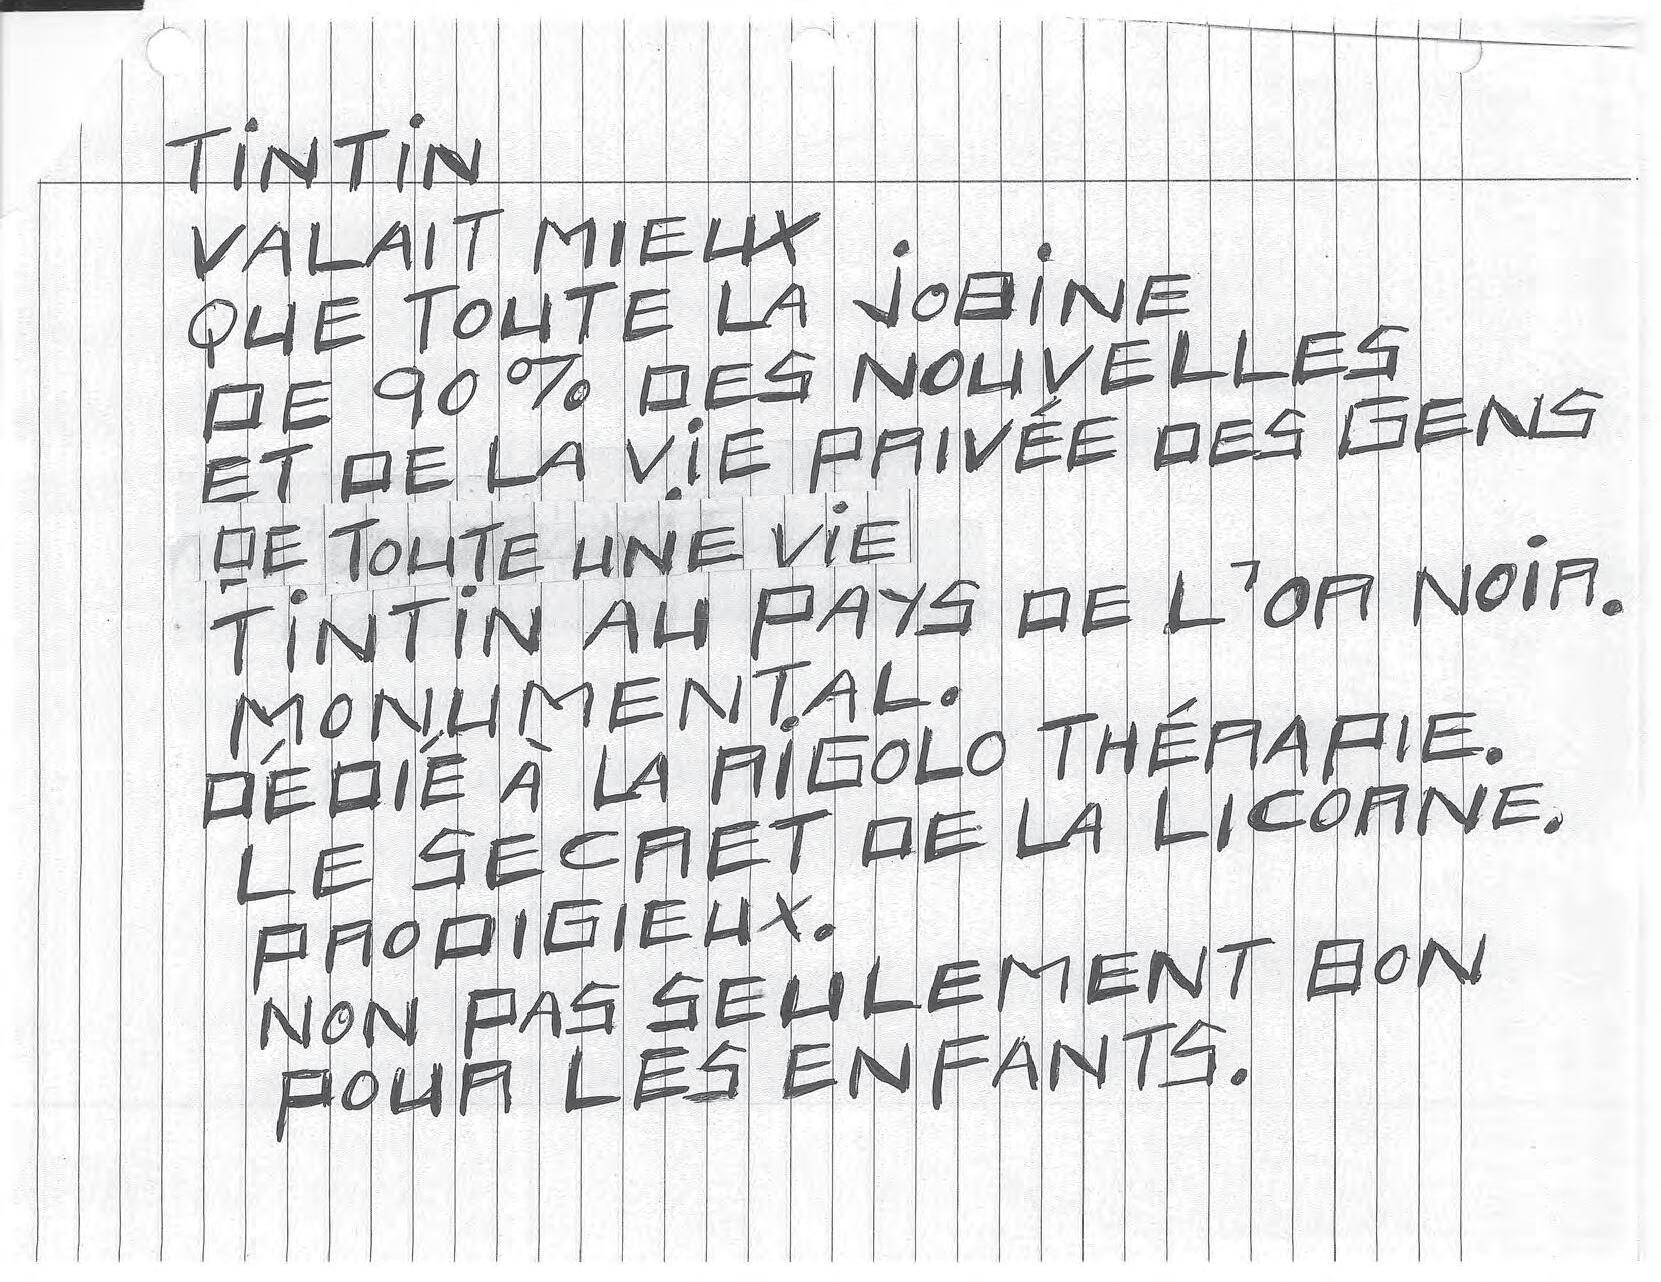 TiNTiN
VALAIT MIEUX
QUE TOUTE LA JOBiNE
DE 90% DES NOUVELLES
ET DE LA ViE PRIVÉE DES GENS
DE TOUTE UNE ViE
TiNTiN AU PAYS DE L'OR NOiR.
MONUMENTAL.
DÉDIÉ À LA RiGOLO THÉRAPIE.
LE SECRET DE LA LICORNE.
PRODIGIEUX.
NON PAS SEULEMENT BON
POUR LES ENFANTS.